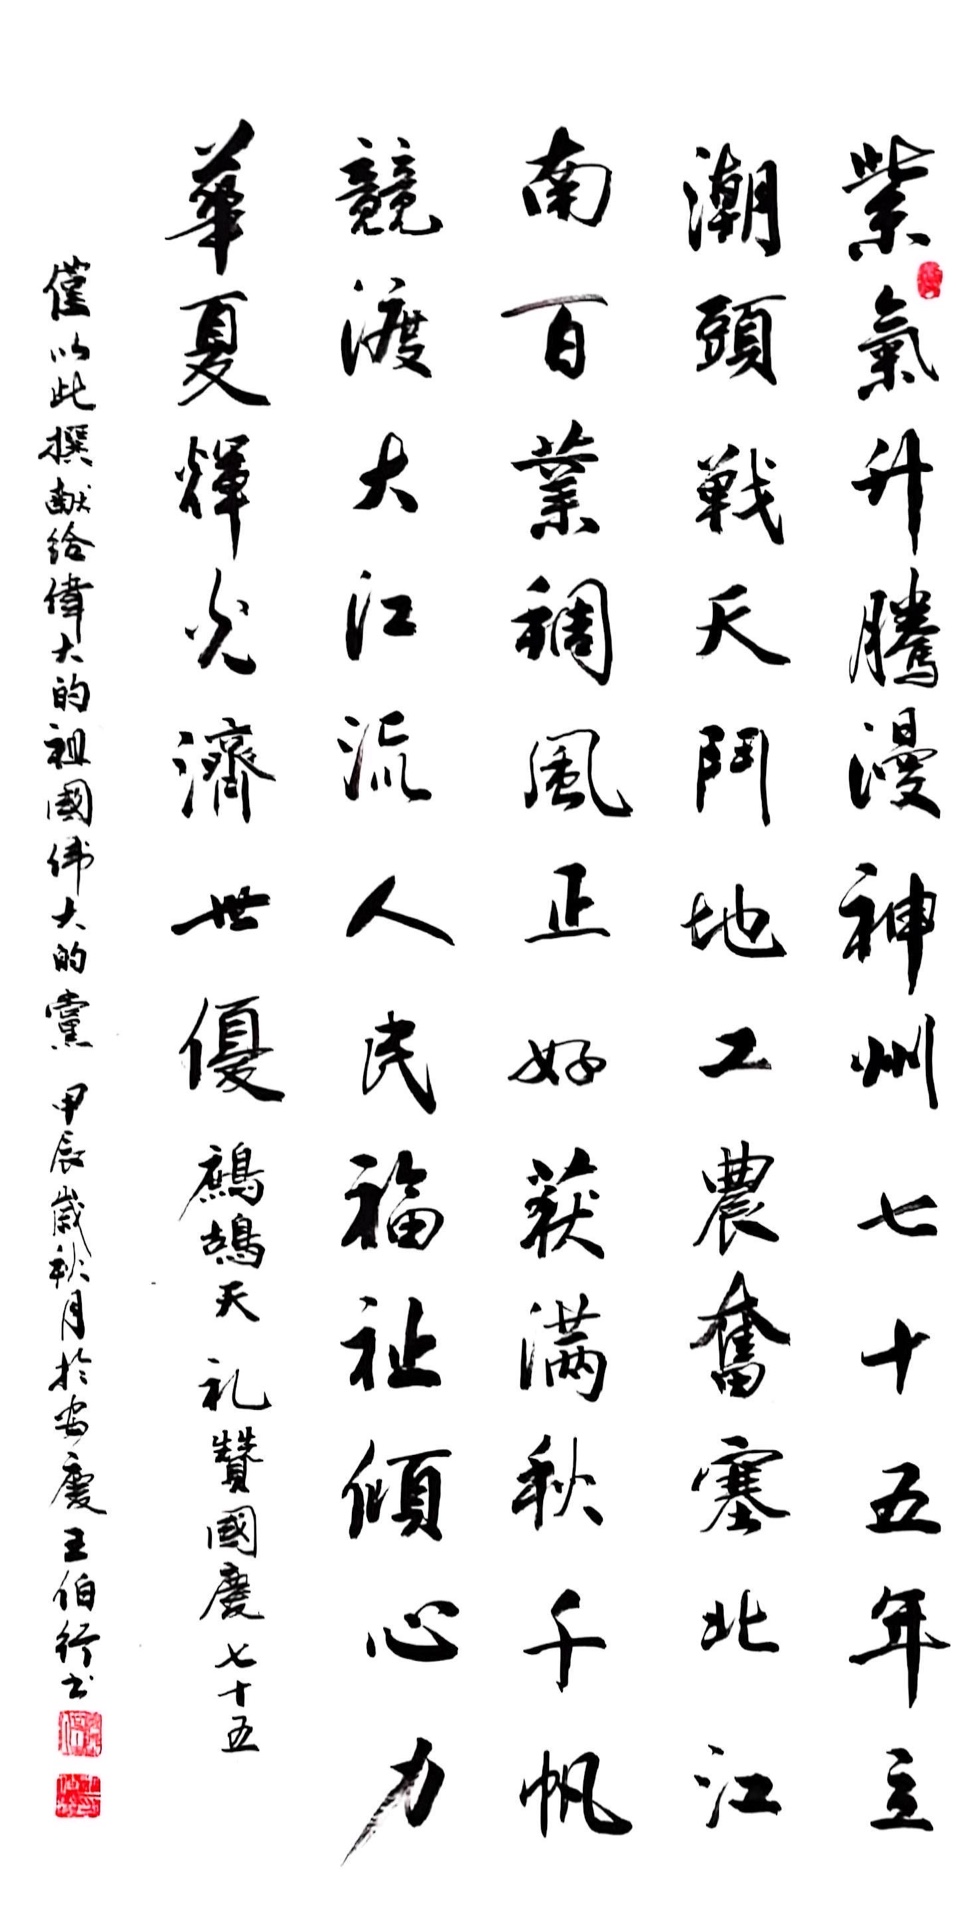 紫氣升騰漫神州七十五年立
潮頭戰天鬥地工農奮塞北江
南百業稠風正好获满秋千帆
競渡大江流人民福祉傾心力
華夏輝光濟世優鷓鴣天礼贊國慶七十五
僅以此撰献给偉大的祖國伟大的黨甲辰歲秋月於安慶王伯行书